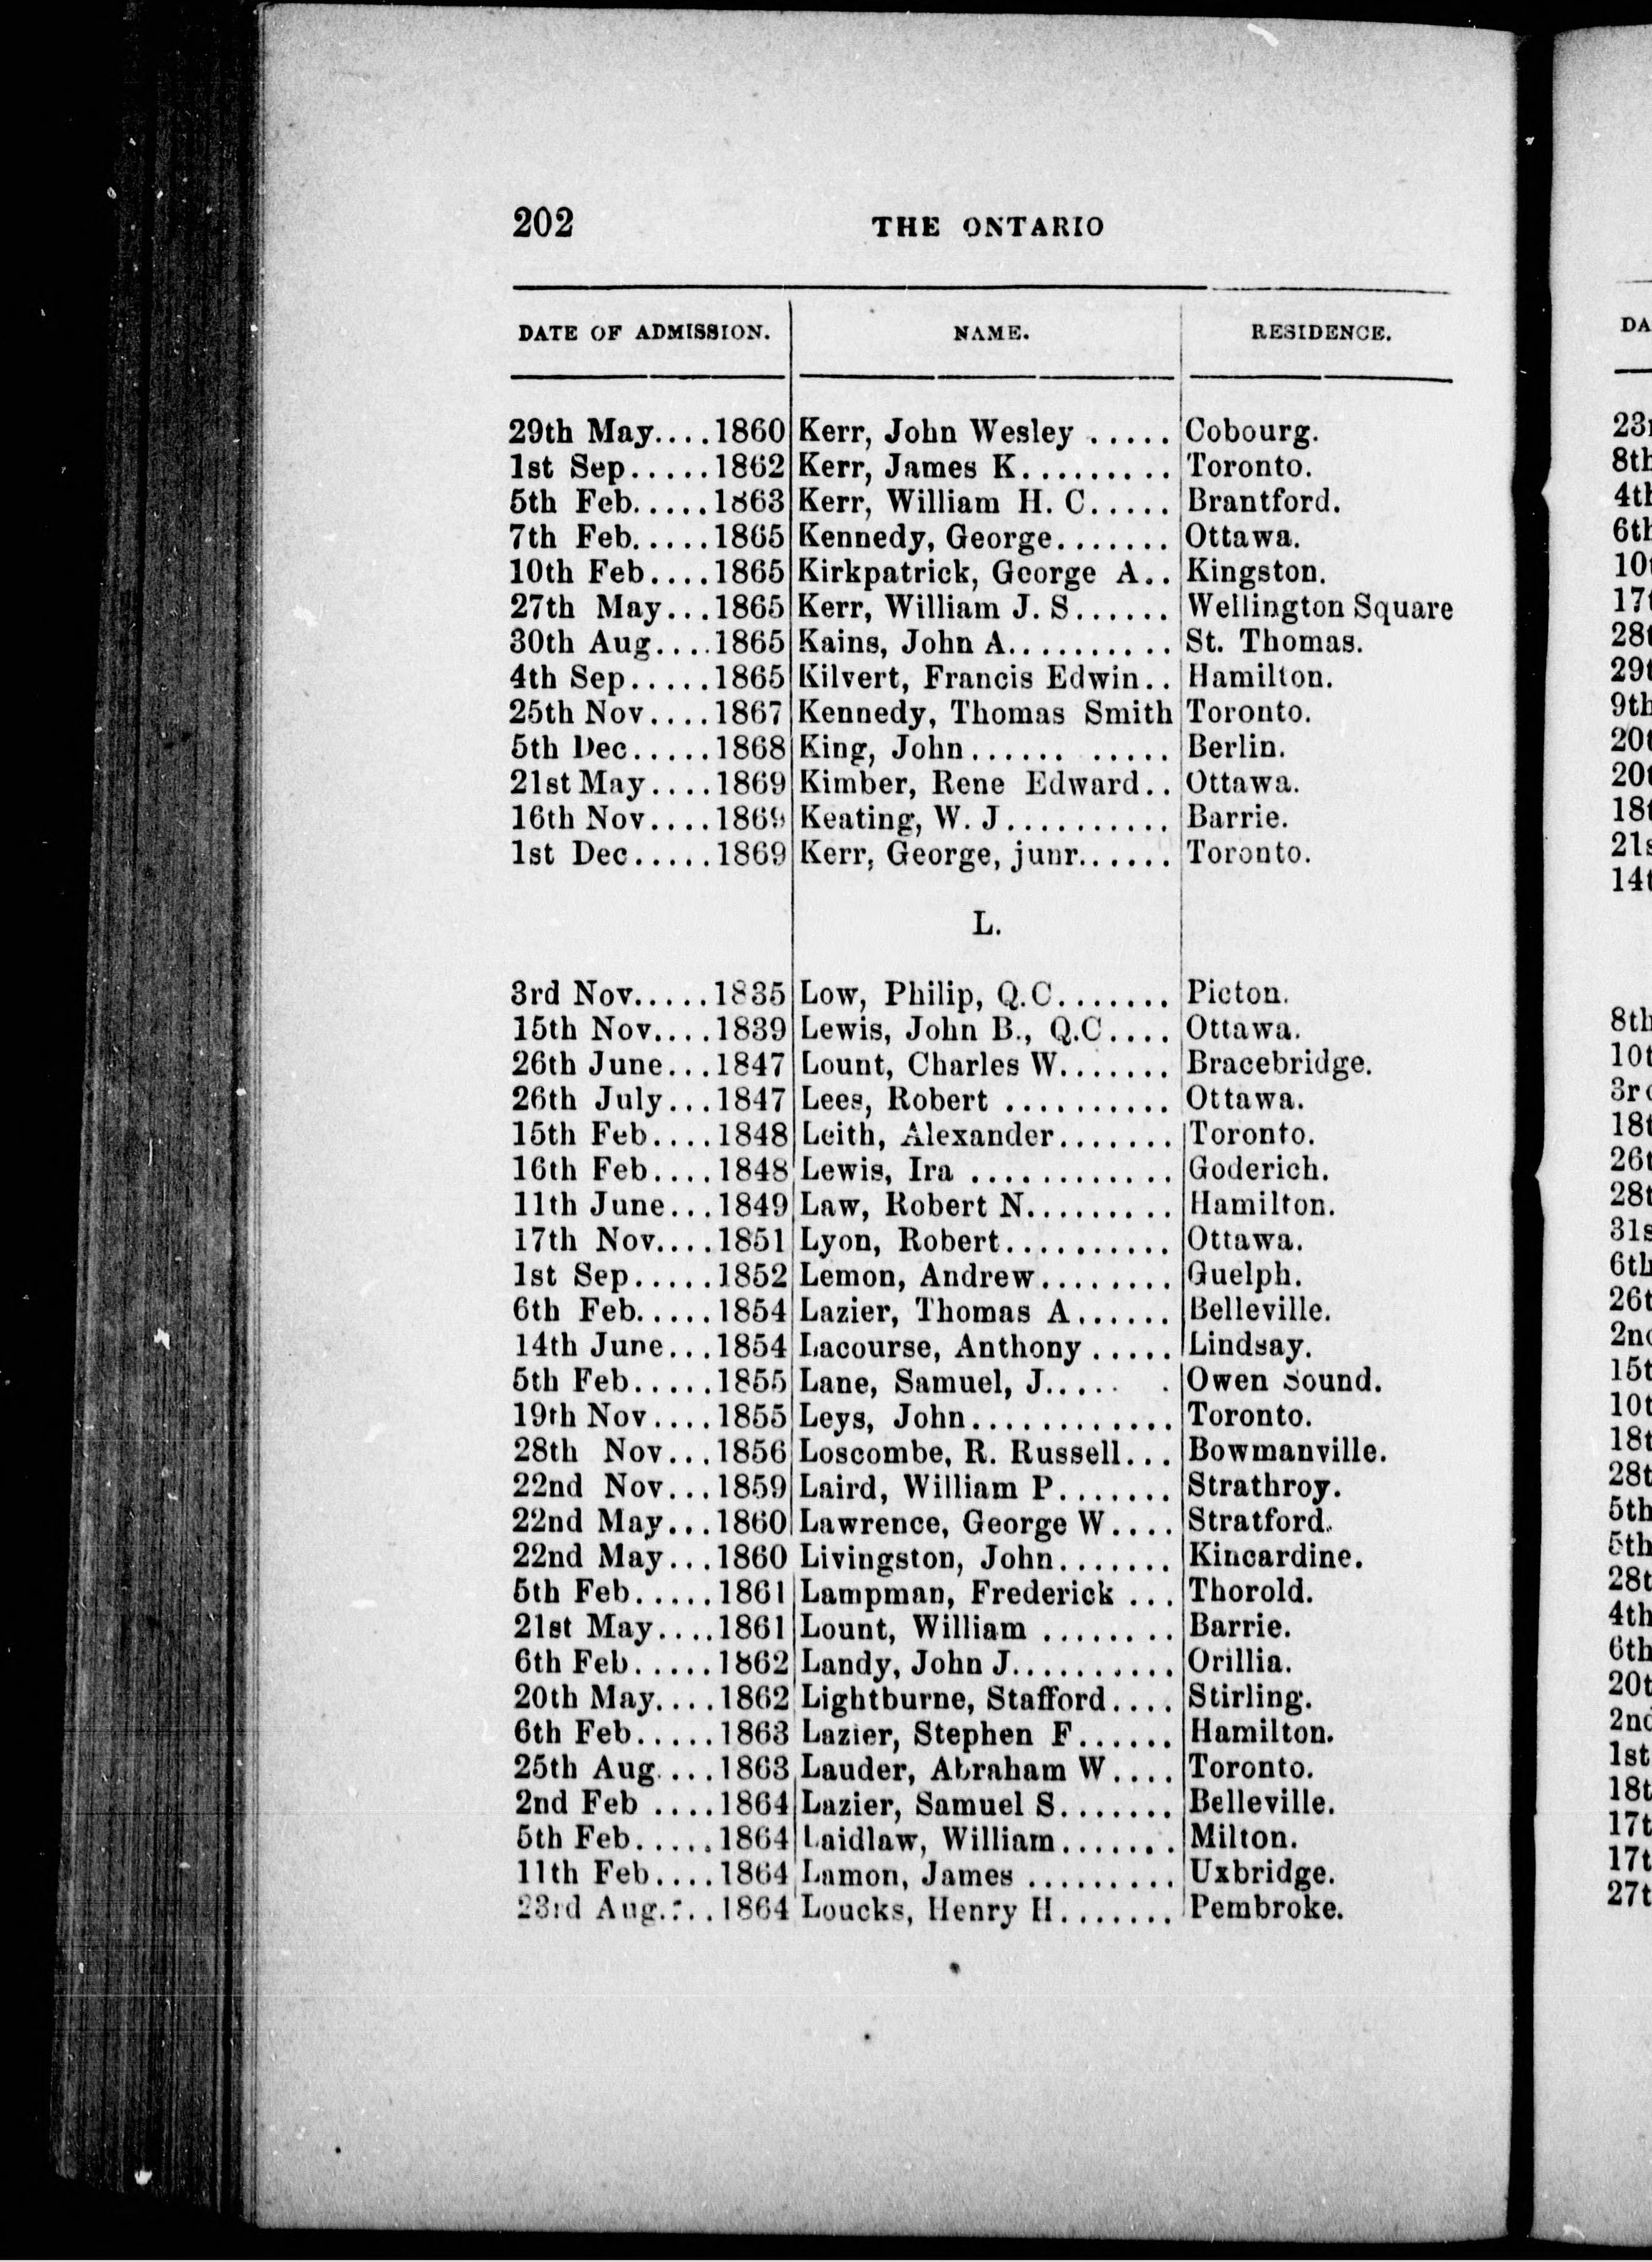 202 THE ONTARIO
DATE OF ADMISSION. NAME. RESIDENCE.
29th May....1860 Kerr, John Wesley ..... Cobourg.
1st Sep.....1862 Kerr, James K......... Toronto.
5th Feb.....1863 Kerr, William H. C..... Brantford.
7th Feb.....1865 Kennedy, George....... Ottawa.
10th Feb....1865 Kirkpatrick, George A.. Kingston.
27th May...1865 Kerr, William J. S...... Wellington Square
30th Aug....1865 Kains, John A.......... St. Thomas.
4th Sep.....1865 Kilvert, Francis Edwin.. Hamilton.
25th Nov....1867 Kennedy, Thomas Smith Toronto.
5th Dec.....1868 King, John...... ..... Berlin.
21st May....1869 Kimber, Rene Edward.. Ottawa.
16th Nov....1869 Keating, W. J.......... Barrie.
1st Dec.....1869 Kerr, George, junr...... Toronto.
L.
3rd Nov.....1835 Low, Philip, Q.C....... Picton.
15th Nov....1839 Lewis, John B., Q.C.... Ottawa.
26th June...1847 Lount, Charles W....... Bracebridge.
26th July...1847 Lees, Robert .......... Ottawa.
15th Feb....1848 Leith, Alexander....... Toronto.
16th Feb....1848 Lewis, Ira ............ Goderich.
11th June...1849 Law, Robert N......... Hamilton.
17th Nov....1851 Lyon, Robert.......... Ottawa.
1st Sep.....1852 Lemon, Andrew........ Guelph.
6th Feb.....1854 Lazier, Thomas A...... Belleville.
14th June...1854 Lacourse, Anthony ..... Lindsay.
5th Feb.....1855 Lane, Samuel, J..... . Owen Sound.
19th Nov....1855 Leys, John............ Toronto.
28th Nov...1856 Loscombe, R. Russell... Bowmanville.
22nd Nov...1859 Laird, William P....... Strathroy.
22nd May...1860 Lawrence, George W.... Stratford.
22nd May...1860 Livingston, John....... Kincardine.
5th Feb.....1861 Lampman, Frederick ... Thorold.
21st May....1861 Lount, William ........ Barrie.
6th Feb.....1862 Landy, John J.......... Orillia.
20th May....1862 Lightburne, Stafford.... Stirling.
6th Feb.....1863 Lazier, Stephen F...... Hamilton.
25th Aug....1863 Lauder, Abraham W.... Toronto.
2nd Feb ....1864 Lazier, Samuel S....... Belleville.
5th Feb.....1864 Laidlaw, William....... Milton.
11th Feb....1864 Lamon, James ......... Uxbridge.
23rd Aug....1864 Loucks, Henry H....... Pembroke.